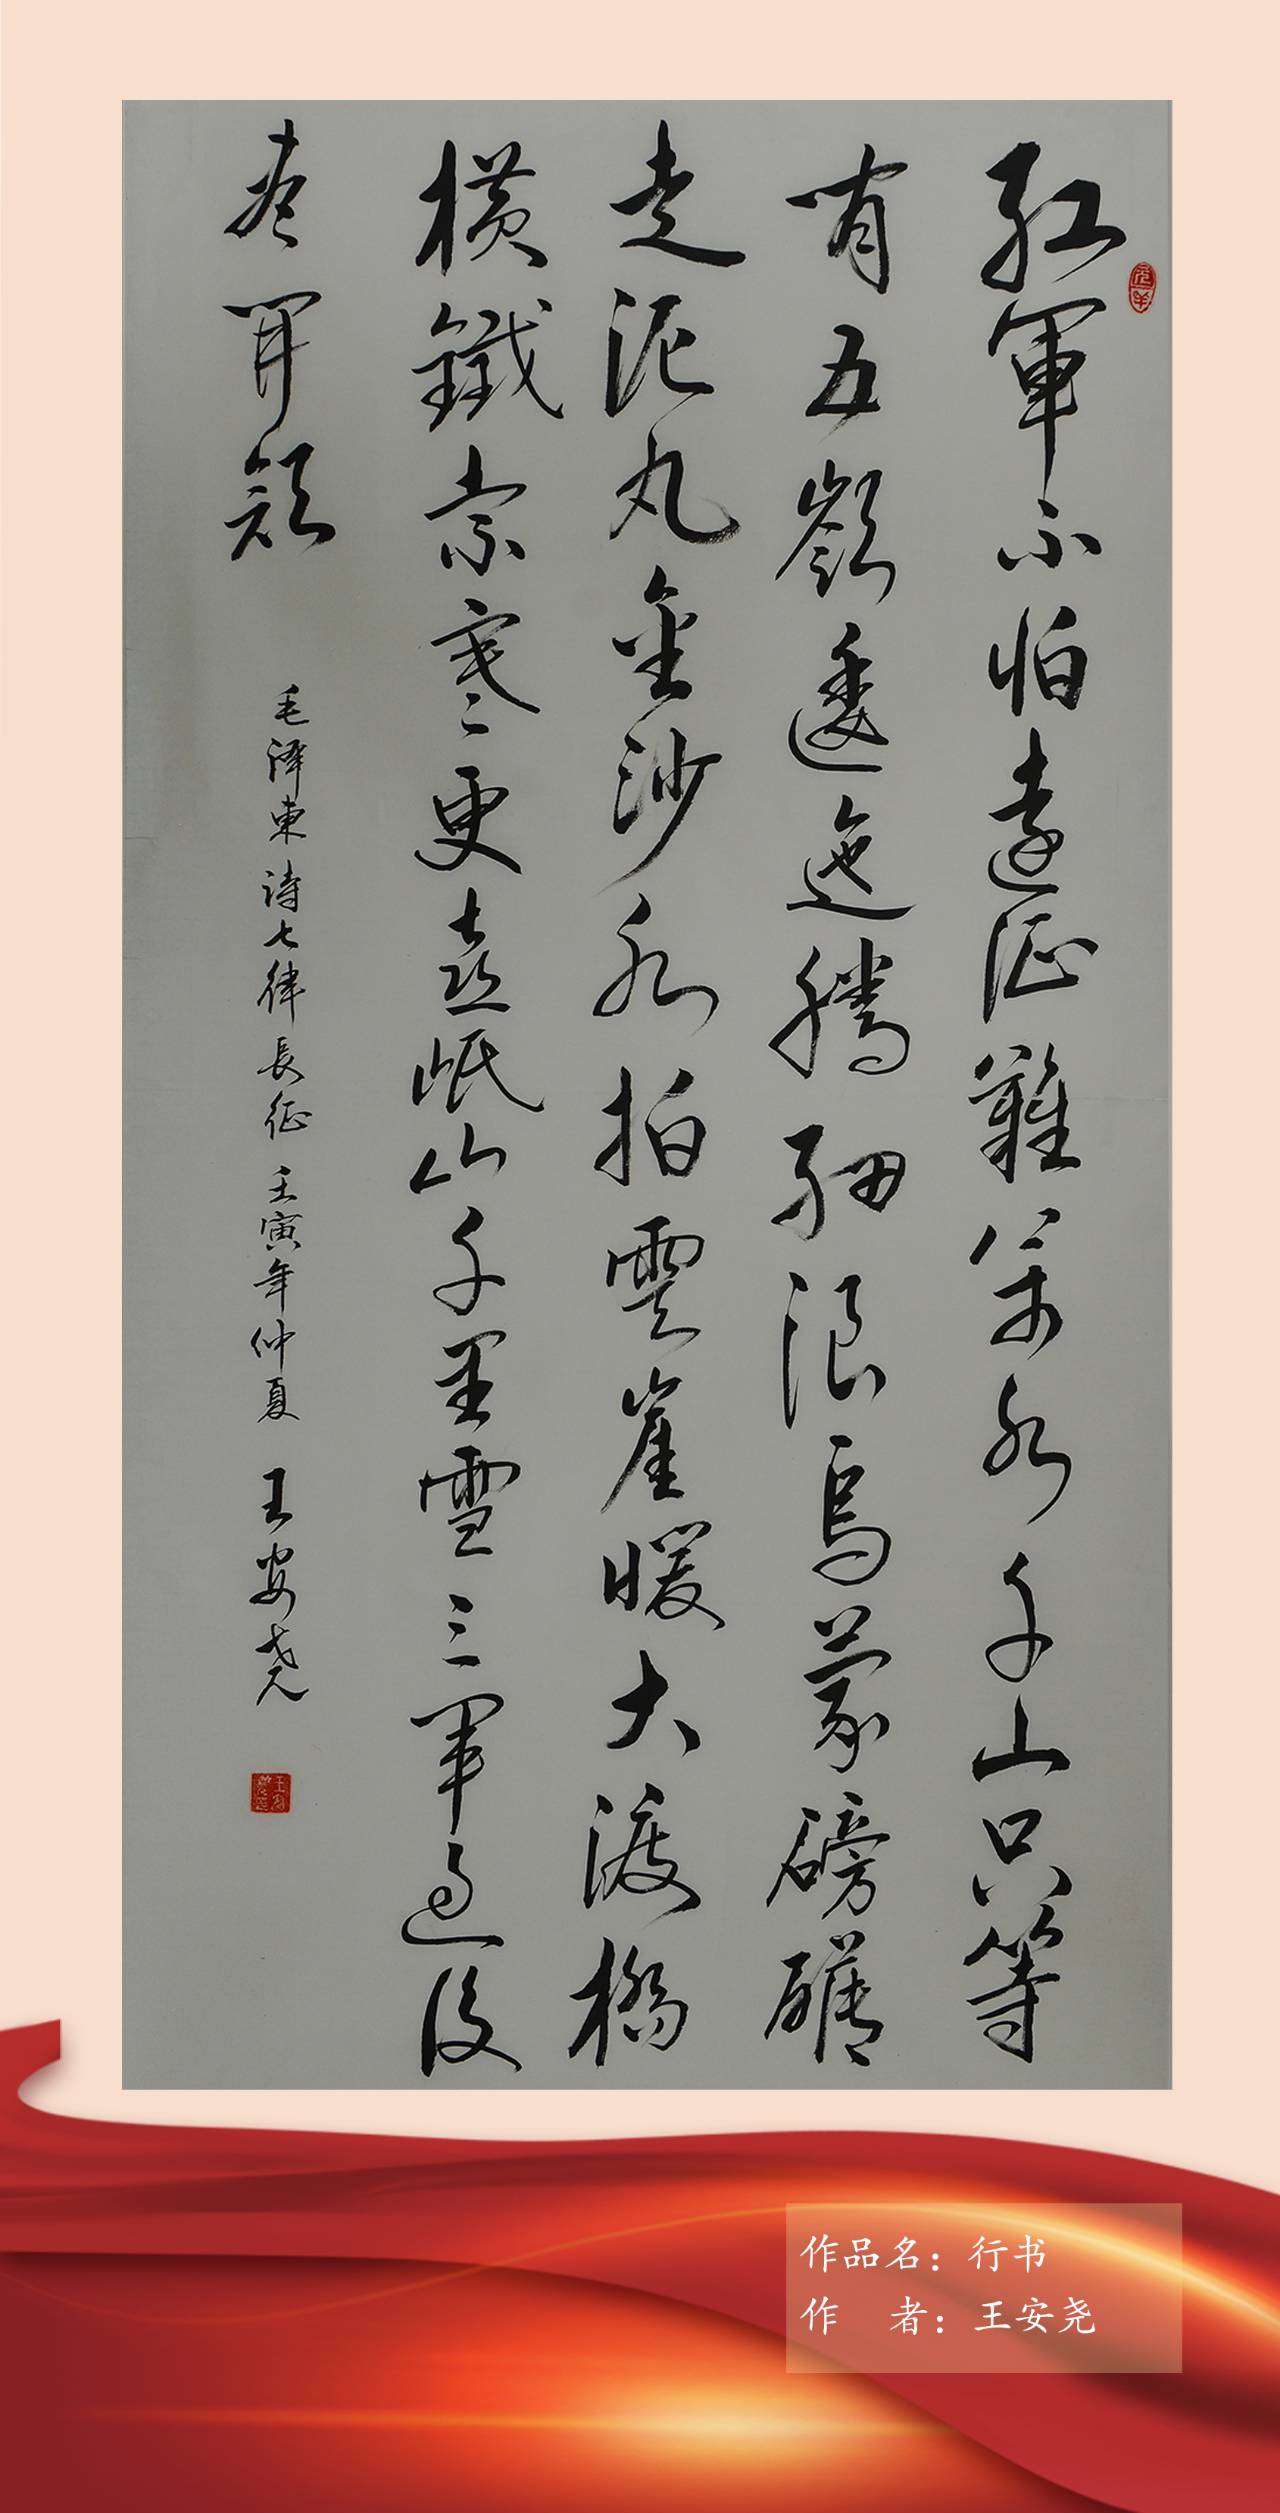 红軍不怕遠征難萬水千山只等
閑五嶺逶迤騰細浪烏蒙磅礴
走泥丸金沙水拍雲崖暖大渡橋
橫鐵索寒更喜岷山千里雪三軍過後
盡開顏
毛澤東诗七律長征 壬寅年仲夏 王安尧
作品名：行书
作 者：王安尧